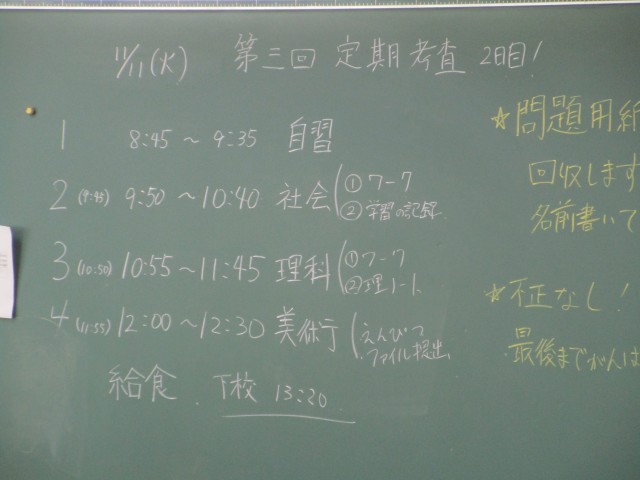 11/11(火) 第三回 定期考査 2日目!
1 8:45 ~ 9:35 自習
2 (9:45) 9:50 ~ 10:40 社会 ①ワーク
②学習の記録
3 (10:50) 10:55 ~ 11:45 理科 ①ワーク
②理ノート
4 (11:55) 12:00 ~ 12:30 美術 えんぴつ
ファイル提出
給食 下校 13:20
☆問題用紙
回収します
名前書いて
☆不正なし!
最後までがんば